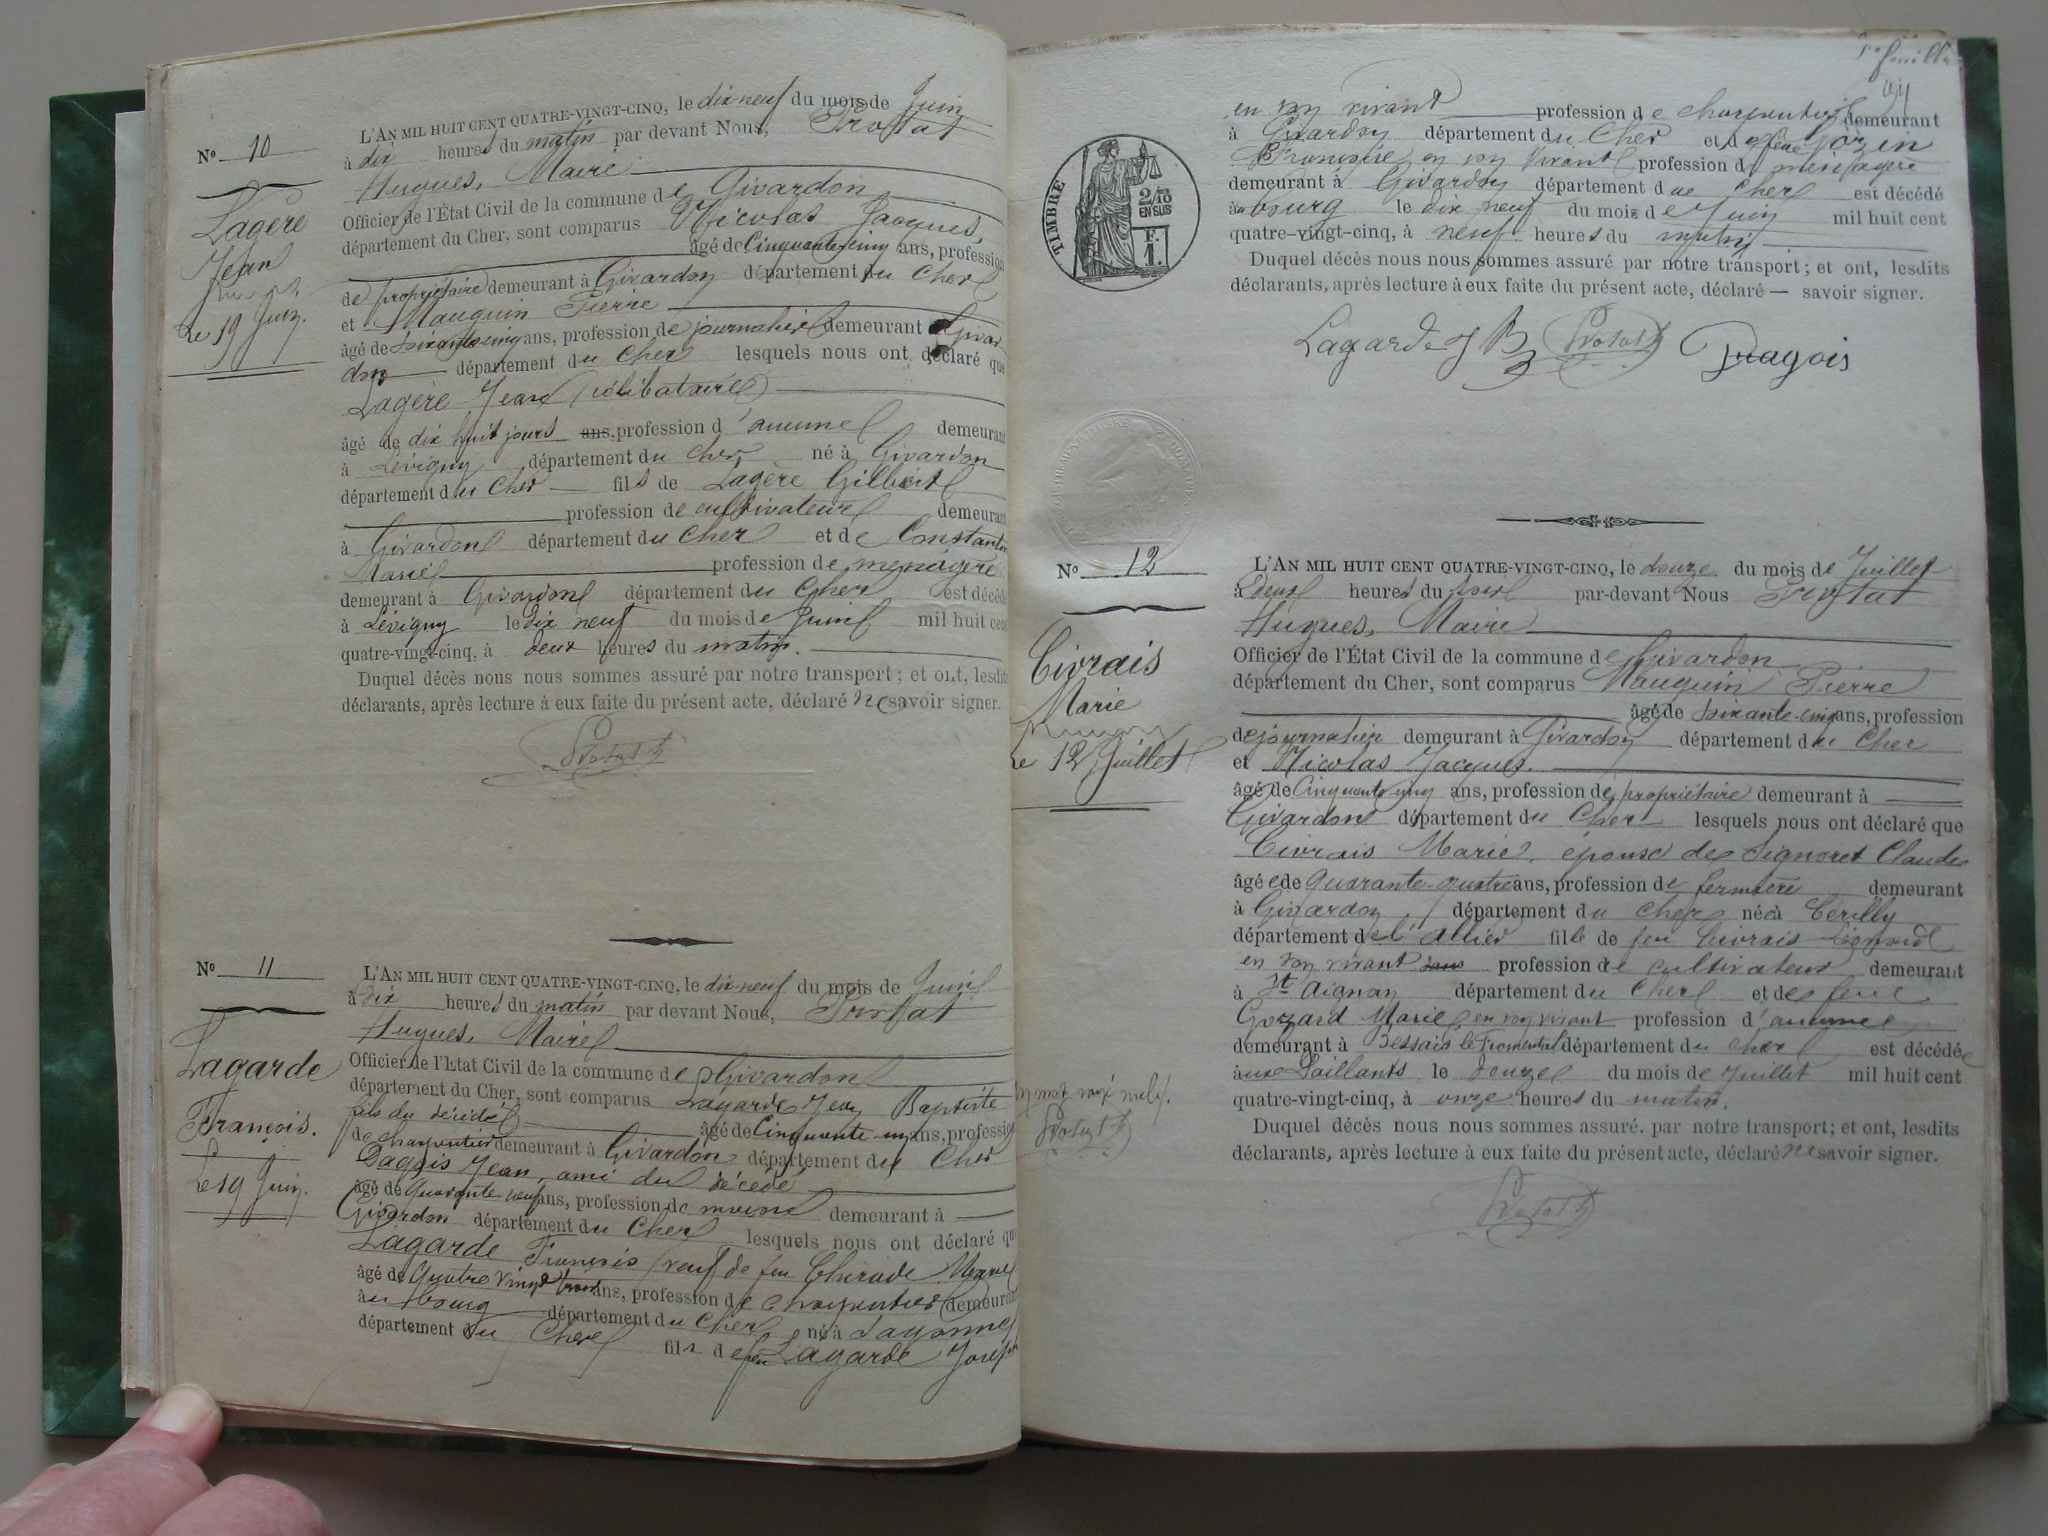 N° 10
Lagère
Jean
le 19 Juin.
L'AN MIL HUIT CENT QUATRE-VINGT-CINQ, le dix-neuf du mois de Juin
à dix heures du matin par devant Nous, Protat
Hugues, Maire
Officier de l'État Civil de la commune de Givardon
département du Cher, sont comparus Nicolas Jacques,
âgé de Cinquante-cinq ans, profession
de propriétaire demeurant à Givardon département du Cher
et Mauguin Pierre
âgé de soixante-cinq ans, profession de journalier demeurant à Givar
don département du Cher lesquels nous ont déclaré que
Lagère Jean (célibataire)
âgé de dix huit jours ans, profession d'aucune demeurant
à Lévigny département du Cher né à Givardon
département du Cher fils de Lagère Gilbert
profession de cultivateur demeurant
à Givardon département du Cher et de Constantin
Marie profession de ménagère
demeurant à Givardon département du Cher est décédé
à Lévigny le dix neuf du mois de Juin mil huit cent
quatre-vingt-cinq, à deux heures du matin.
Duquel décès nous nous sommes assuré par notre transport ; et ont, lesdits
déclarants, après lecture à eux faite du présent acte, déclaré ne savoir signer.
Protat h
N° 11
Lagarde
François.
Le 19 Juin.
L'AN MIL HUIT CENT QUATRE-VINGT-CINQ, le dix-neuf du mois de Juin
à dix heures du matin par devant Nous, Protat
Hugues, Maire
Officier de l'Etat Civil de la commune de Givardon
département du Cher, sont comparus Lagarde Jean Baptiste
fils du décédé âgé de Cinquante-un ans, profession
de charpentier demeurant à Givardon département du Cher
Dagois Jean, ami du décédé
âgé de Quarante-neuf ans, profession de demeurant à
Givardon département du Cher lesquels nous ont déclaré que
Lagarde François veuf de feu Chirade Marie
âgé de Quatre vingt trois ans, profession de charpentier demeurant
au bourg département du Cher né à Sagonne
département du Cher fils de feu Lagarde Joseph
en son vivant profession de charpentier demeurant
à Givardon département du Cher et de feue
Françoise en son vivant profession de ménagère
demeurant à Givardon département du Cher est décédé
au bourg le dix neuf du mois de Juin mil huit cent
quatre-vingt-cinq, à neuf heures du matin
Duquel décès nous nous sommes assuré par notre transport ; et ont, lesdits
déclarants, après lecture à eux faite du présent acte, déclaré — savoir signer.
Lagarde J B Protat h Dagois
TIMBRE
2/10
EN SUS
F.
1.
N° 12
Civrais
Marie
le 12 Juillet
L'AN MIL HUIT CENT QUATRE-VINGT-CINQ, le douze du mois de Juillet
à deux heures du soir par-devant Nous Protat
Hugues, Maire
Officier de l'État Civil de la commune de Givardon
département du Cher, sont comparus Mauguin Pierre
âgé de soixante-cinq ans, profession
de journalier demeurant à Givardon département du Cher
et Nicolas Jacques.
âgé de Cinquante-cinq ans, profession de propriétaire demeurant à
Givardon département du Cher lesquels nous ont déclaré que
Civrais Marie, épouse de Signoret Claude
âgée de Quarante-quatre ans, profession de fermière demeurant
à Givardon département du Cher née à Cérilly
département de l'Allier fille de feu Civrais Léonard
en son vivant sans profession de cultivateur demeurant
à St Aignan département du Cher et de feue
Gozzard Marie en son vivant profession d'aucune
demeurant à Bessais le Fromental département du Cher est décédée
aux Paillants le douze du mois de Juillet mil huit cent
quatre-vingt-cinq, à onze heures du matin.
Duquel décès nous nous sommes assuré. par notre transport ; et ont, lesdits
déclarants, après lecture à eux faite du présent acte, déclaré ne savoir signer.
un mot rayé nul.
Protat h
Protat h